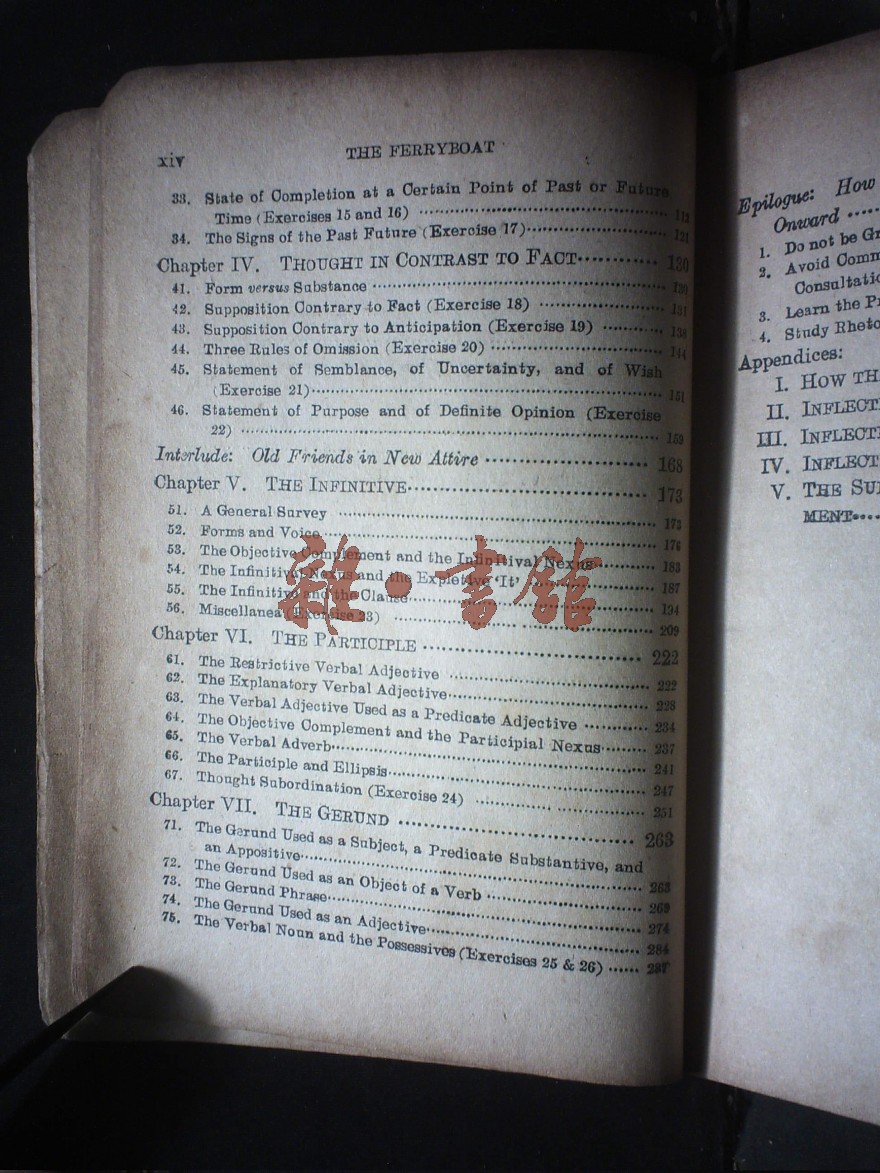 xiv THE FERRYBOAT
33. State of Completion at a Certain Point of Past or Future
Time (Exercises 15 and 16)
34. The Signs of the Past Future (Exercise 17) 121
Chapter IV. THOUGHT IN CONTRAST TO FACT 130
41. Form versus Substance 130
42. Supposition Contrary to Fact (Exercise 18) 131
43. Supposition Contrary to Anticipation (Exercise 19) 138
44. Three Rules of Omission (Exercise 20) 144
45. Statement of Semblance, of Uncertainty, and of Wish
(Exercise 21) 151
46. Statement of Purpose and of Definite Opinion (Exercise
22) 159
Interlude: Old Friends in New Attire 168
Chapter V. THE INFINITIVE 173
51. A General Survey 173
52. Forms and Voice 176
53. The Objective Complement and the Infinitival Nexus 183
54. The Infinitival Nexus and the Expletive 'It' 187
55. The Infinitive and the Clause 194
56. Miscellanea (Exercise 23) 209
Chapter VI. THE PARTICIPLE 222
61. The Restrictive Verbal Adjective 222
62. The Explanatory Verbal Adjective 228
63. The Verbal Adjective Used as a Predicate Adjective 234
64. The Objective Complement and the Participial Nexus 237
65. The Verbal Adverb 241
66. The Participle and Ellipsis 247
67. Thought Subordination (Exercise 24) 251
Chapter VII. THE GERUND 263
71. The Gerund Used as a Subject, a Predicate Substantive, and
an Appositive 263
72. The Gerund Used as an Object of a Verb 269
73. The Gerund Phrase 274
74. The Gerund Used as an Adjective 284
75. The Verbal Noun and the Possessives (Exercises 25 & 26) 287
雜·書館
Epilogue: How
Onward
1. Do not be Gr
2. Avoid Comm
Consultatio
3. Learn the Pr
4. Study Rheto
Appendices:
I. HOW TH
II. INFLECTI
III. INFLECTI
IV. INFLECT
V. THE SU
MENT